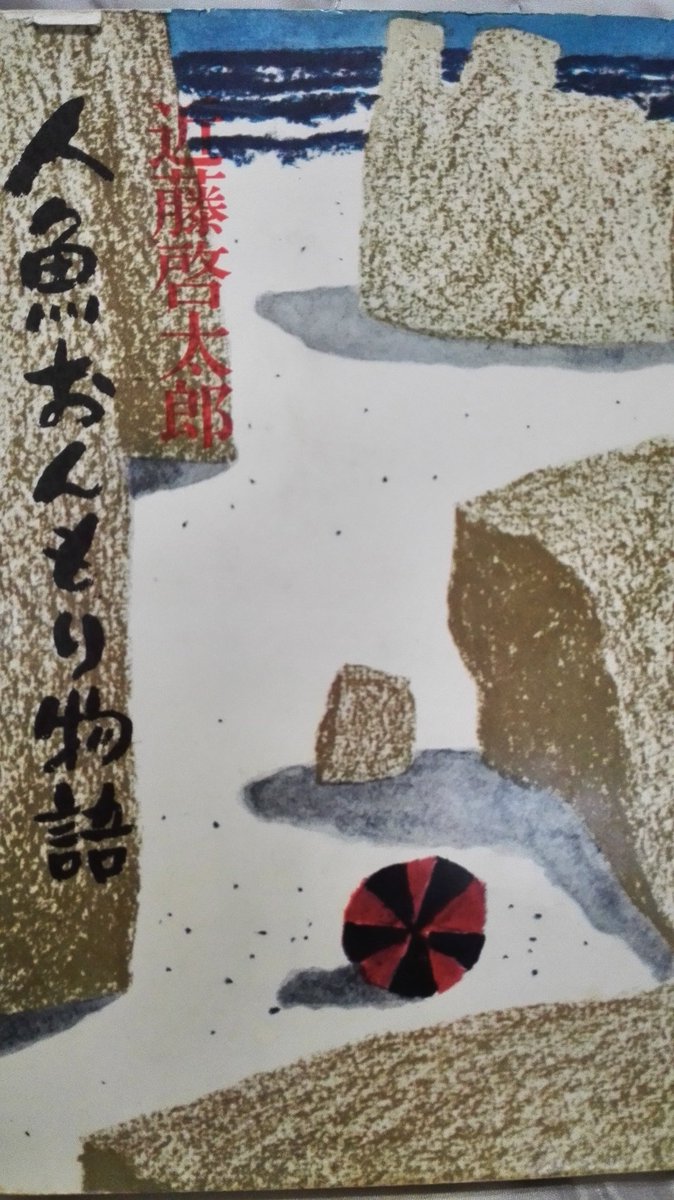 近藤啓太郎
人魚おんもり物語